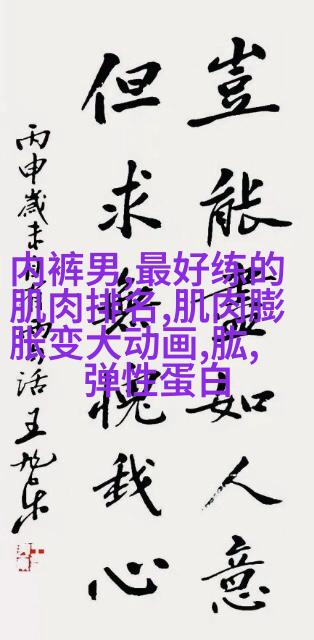 豈能盡如人意
但求無愧我心
丙申歲末
活 王旭东
内裤男,最好练的
肌肉排名,肌肉膨
胀变大动画,肱,
弹性蛋白